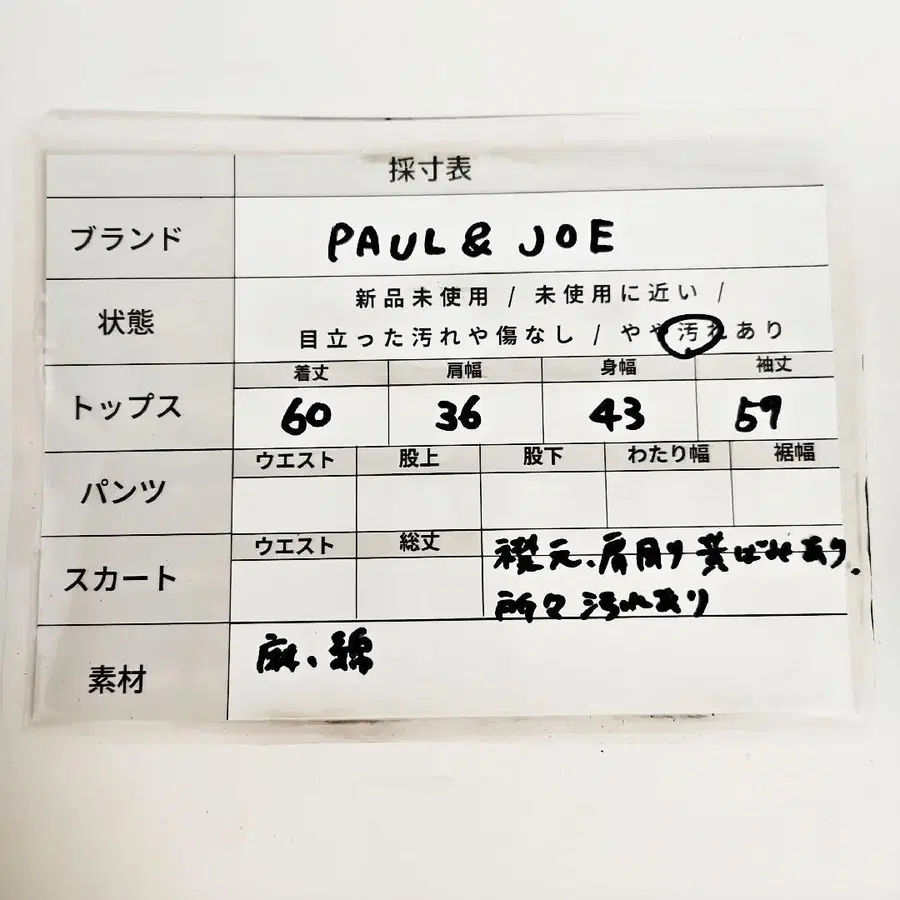 採寸表
ブランド PAUL & JOE
状態 新品未使用 / 未使用に近い /
目立った汚れや傷なし / やや汚れあり
着丈 肩幅 身幅 袖丈
トップス 60 36 43 59
ウエスト 股上 股下 わたり幅 裾幅
パンツ
ウエスト 総丈
スカート
襟元、肩周り黄ばみあり
所々汚れあり
素材 麻、綿